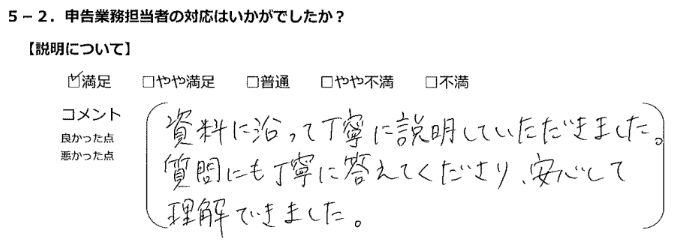 5－2．申告業務担当者の対応はいかがでしたか？
【説明について】
☑満足　□やや満足　□普通　□やや不満　□不満
コメント
良かった点
悪かった点
資料に沿って丁寧に説明していただきました。
質問にも丁寧に答えてくださり、安心して
理解できました。